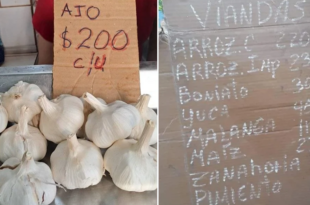 AJO
$200
c/u
VIANDAS
ARROZ.C 220
ARROZ.Imp 23
Boniato
YUCA
MALANGA
MAÍZ
ZANAHORIA
PIMIENTO